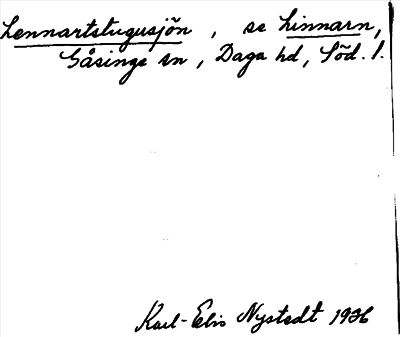 Lennartstugusjön, se Linnarn,
Gåsinge sn, Daga hd, Söd. l.
Karl-Elis Nystedt 1936